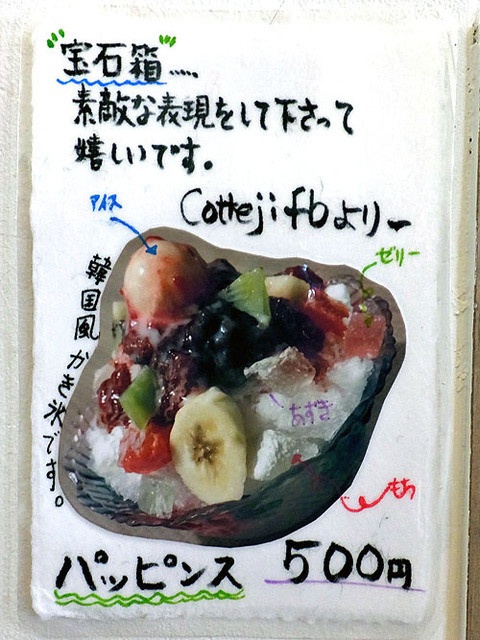 "宝石箱"……
素敵な表現をして下さって
嬉しいです。
Cottejifbよりー
アイス
ゼリー
韓国風かき氷です。
あずき
もち
パッピンス 500円